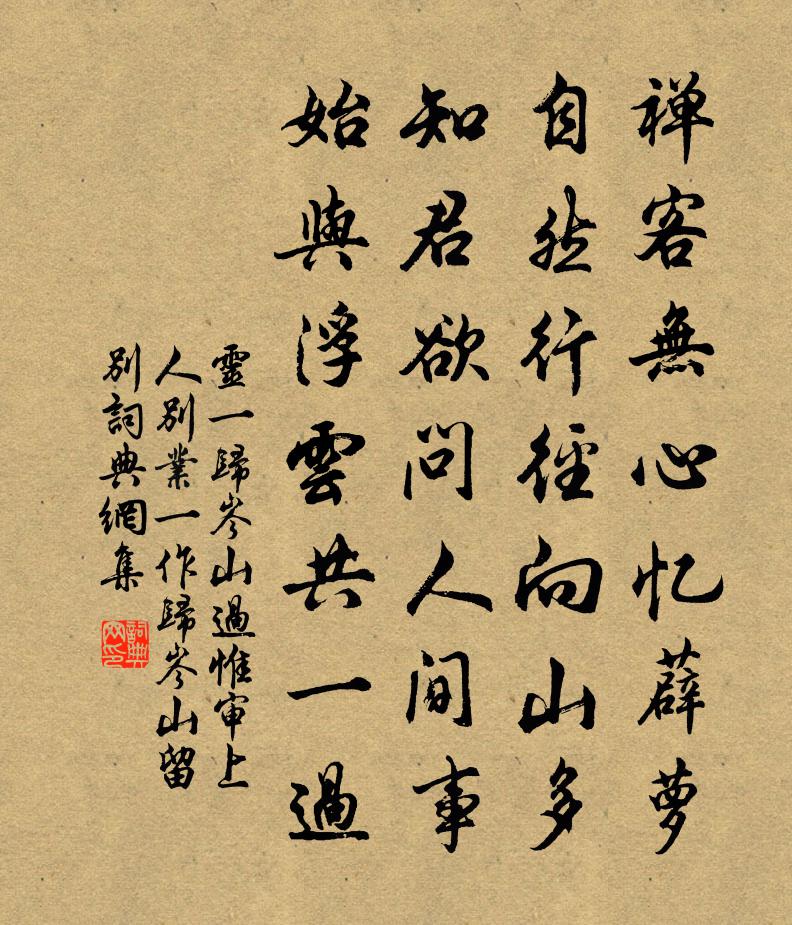 禅客無心忆薜萝
自然行径向山多
知君欲问人间事
始與浮雲共一過
靈一歸岑山過惟审上
人别業一作歸岑山留
别詞典網集
詞典網印